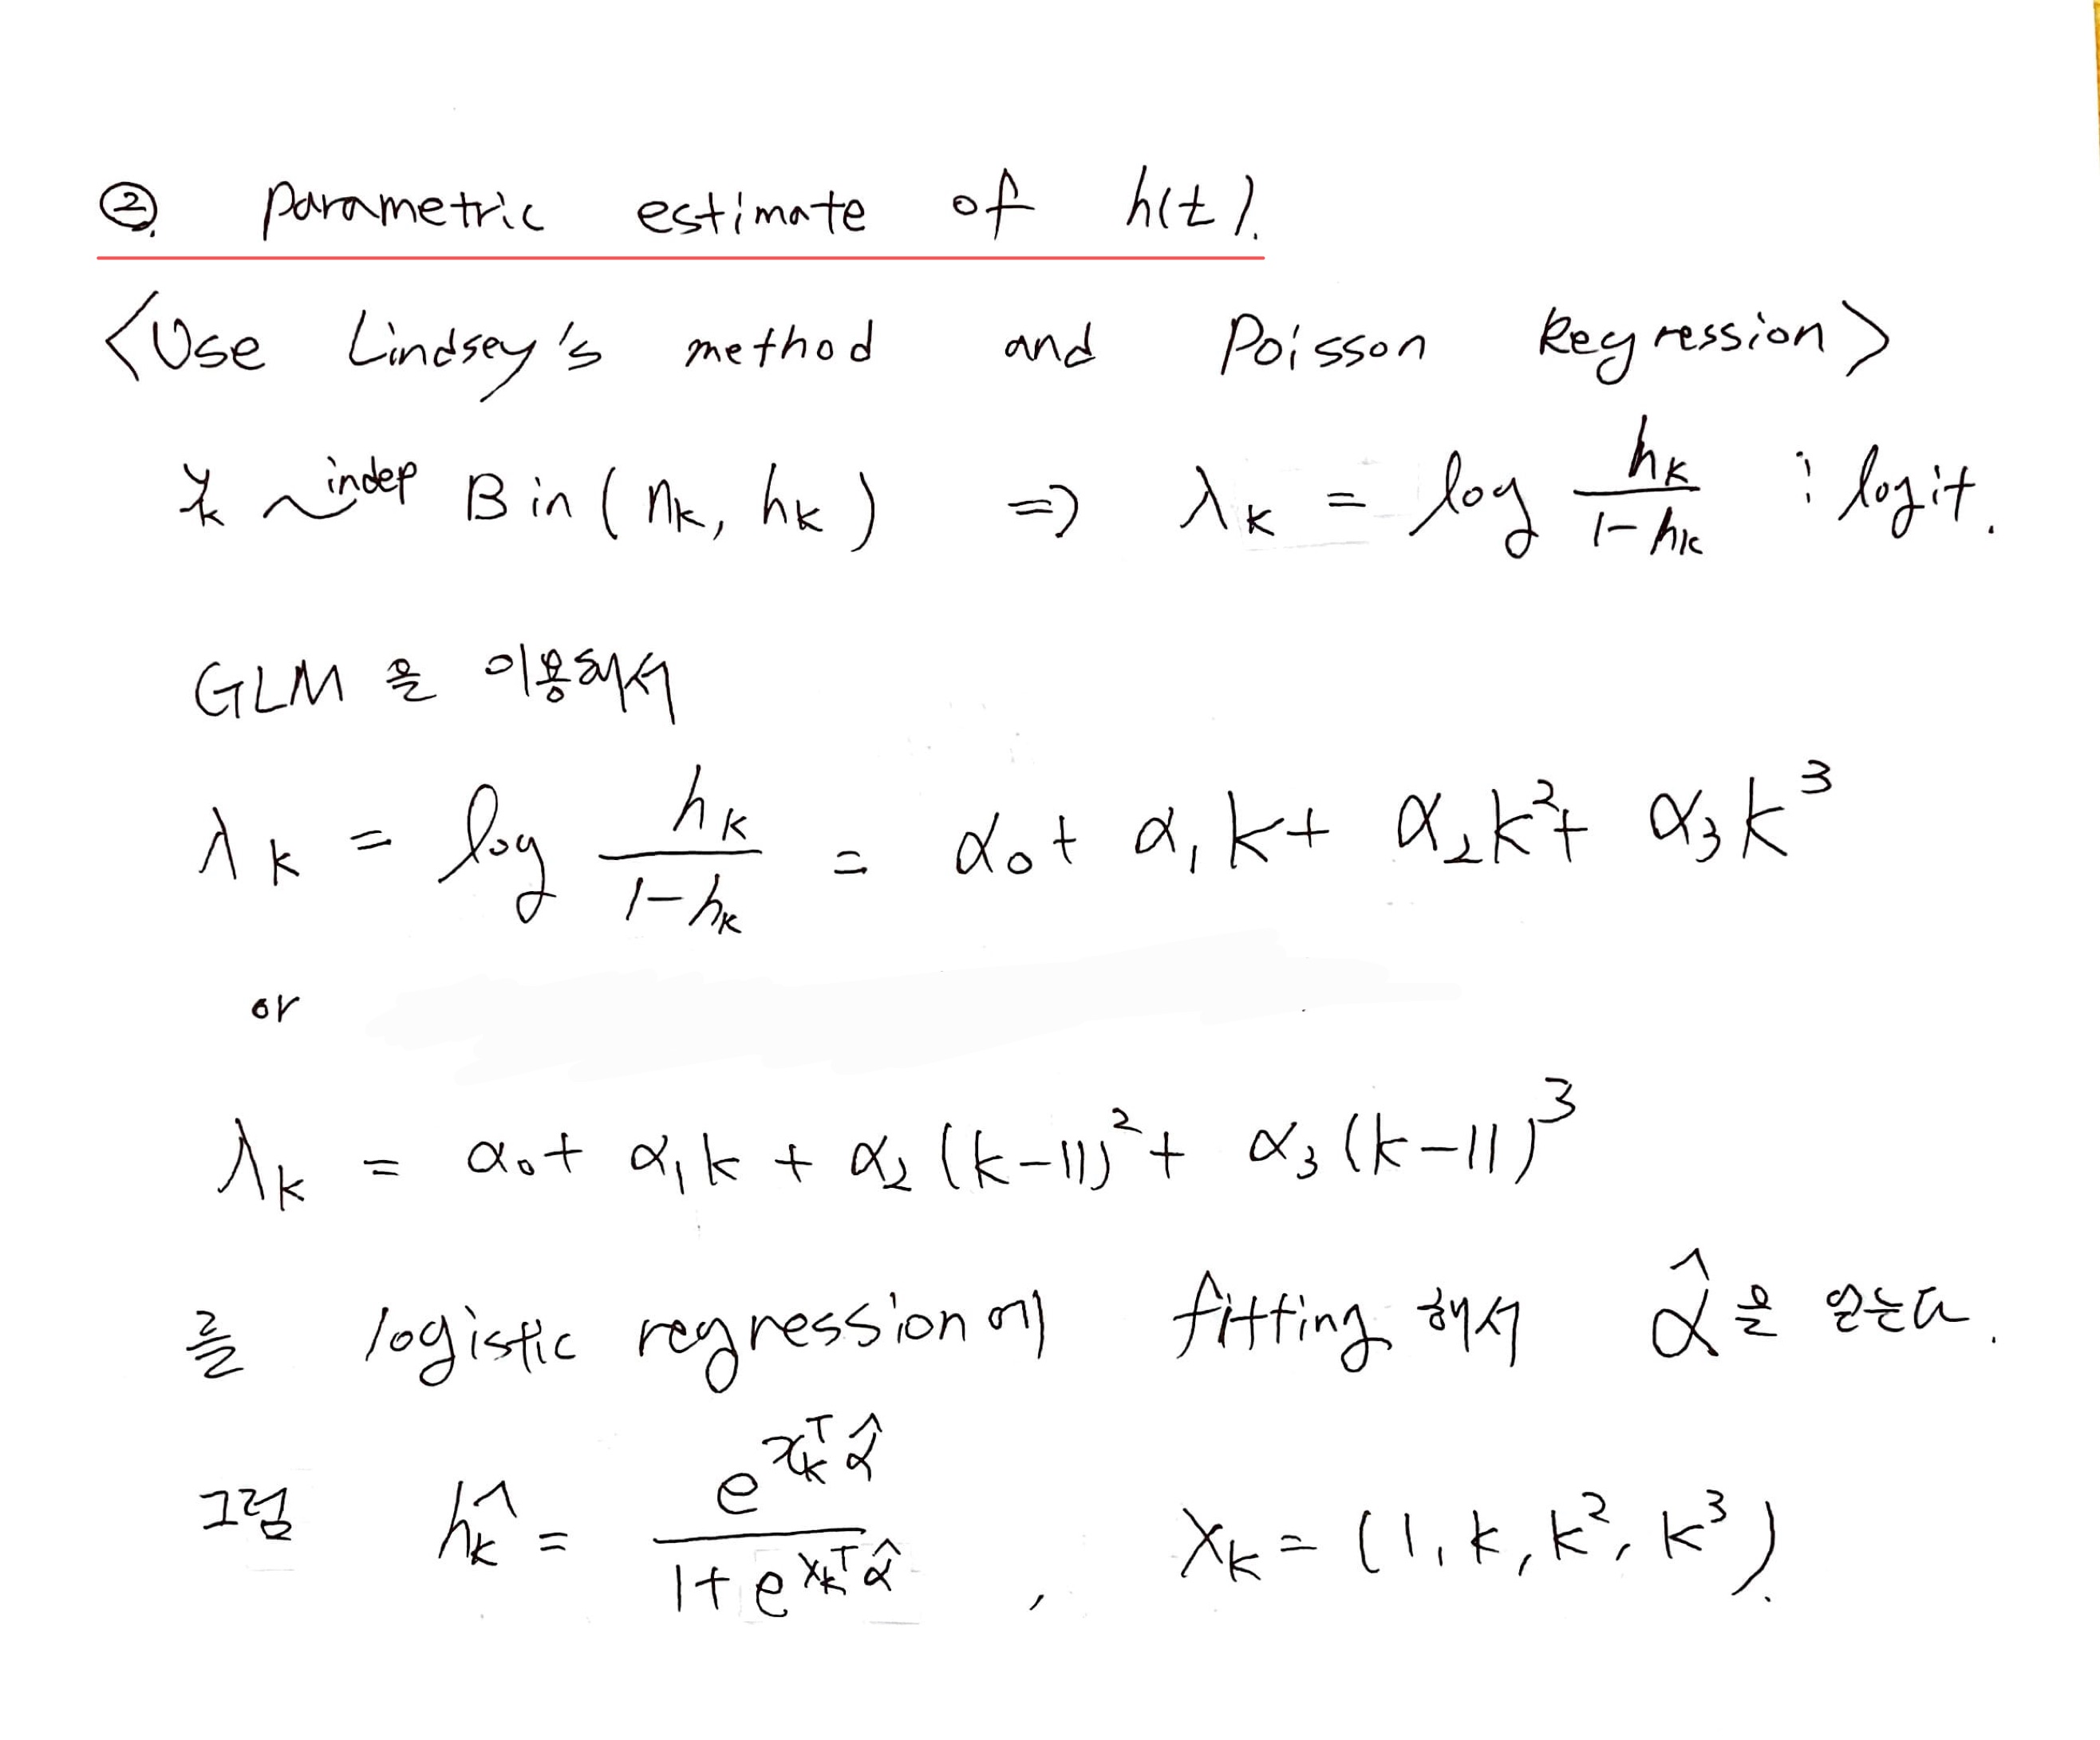 ②. parametric estimate of h(t).
<Use Lindsey's method and Poisson Regression>
y_k ~indep Bin(n_k, h_k) => λ_k = log h_k/(1-h_k) : logit.
GLM을 이용해서
λ_k = log h_k/(1-h_k) = α_0 + α_1 k + α_2 k^2 + α_3 k^3
or
λ_k = α_0 + α_1 k + α_2 (k-11)^2 + α_3 (k-11)^3
를 logistic regression에 fitting 해서 α̂을 얻는다.
그럼 ĥ_k = e^{x_k^T α̂}/(1+e^{x_k^T α̂}), X_k = (1, k, k^2, k^3).